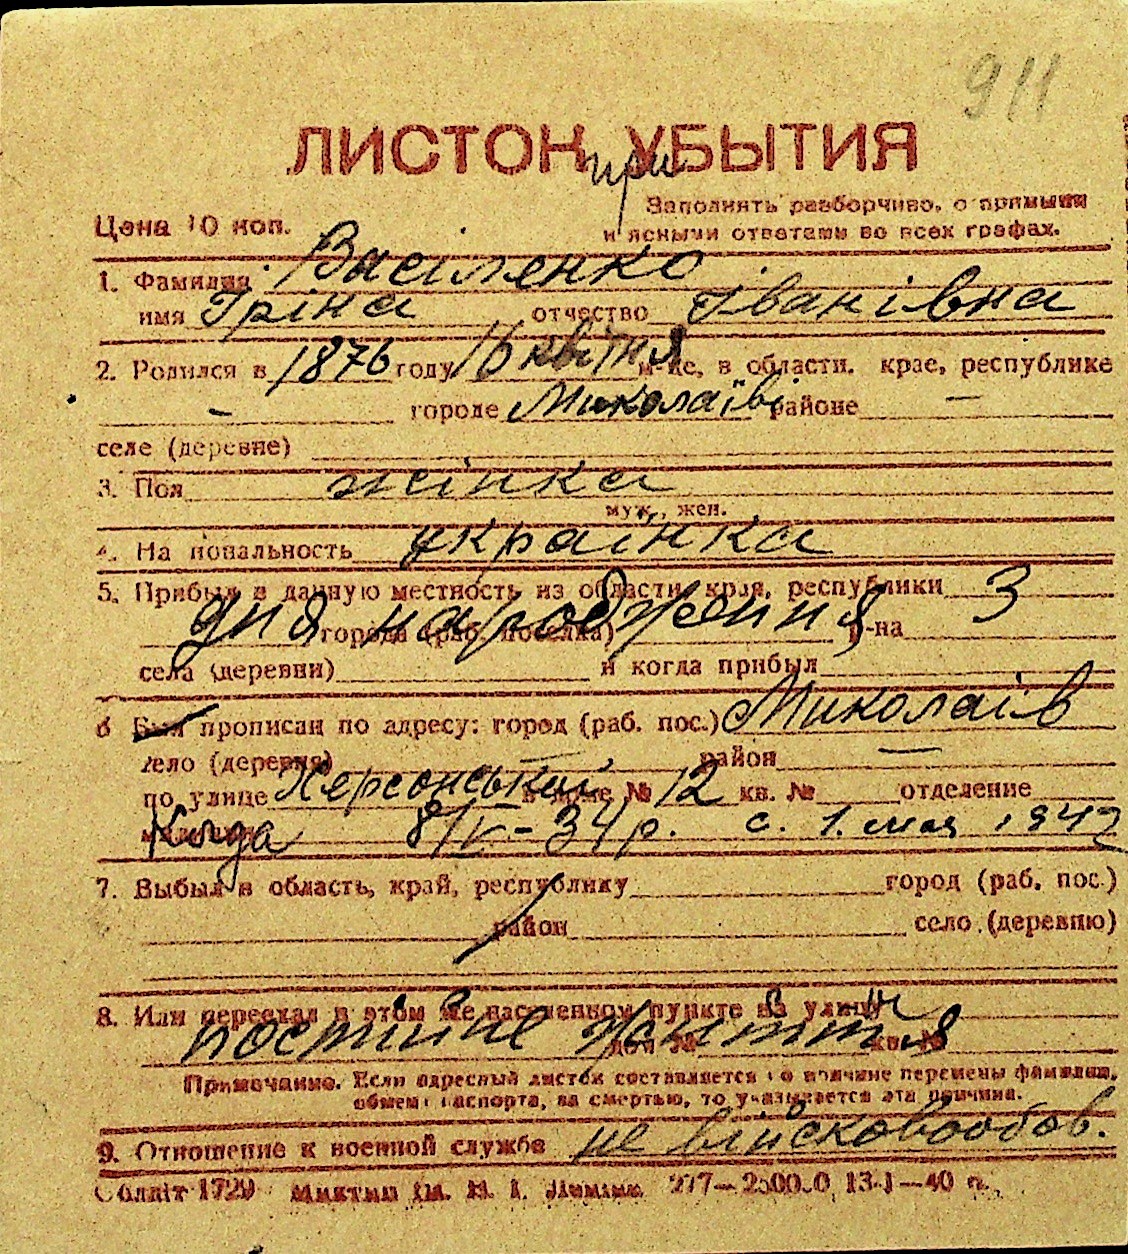 911
ЛИСТОК УБЫТИЯ
при
Заполнять разборчиво, с прямыми
Цена 10 коп.
и ясными ответами во всех графах.
1. Фамилия Васіленко
имя Іріна отчество Іванівна
2. Родился в 1876 году 16 квітня м-це, в области, крае, республике
— городе Миколаїві районе —
селе (деревне)
3. Пол жінка
муж., жен.
4. Национальность українка
5. Прибыл в данную местность из области, края, республики З
дня народження города (раб. поселка) р-на
села (деревни) и когда прибыл
6 Был прописан по адресу: город (раб. пос.) Миколаїв
село (деревня) — район —
по улице Херсонський в доме № 12 кв. № отделение
милиции Когда 8/IV-34 р. с. 1. мая 1942
7. Выбыл в область, край, республику город (раб. пос.)
район село (деревню)
8. Или переехал в этом же населенном пункте на улицу
постійне життя дом № кв. №
Примечание. Если адресный листок составляется по причине перемены фамилии,
обмена паспорта, за смертью, то указывается эта причина.
9. Отношение к военной службе не військовообов.
Облліт 1729 Миктип ім. В. І. Леніна 277—25000.0 13-I—40 р.